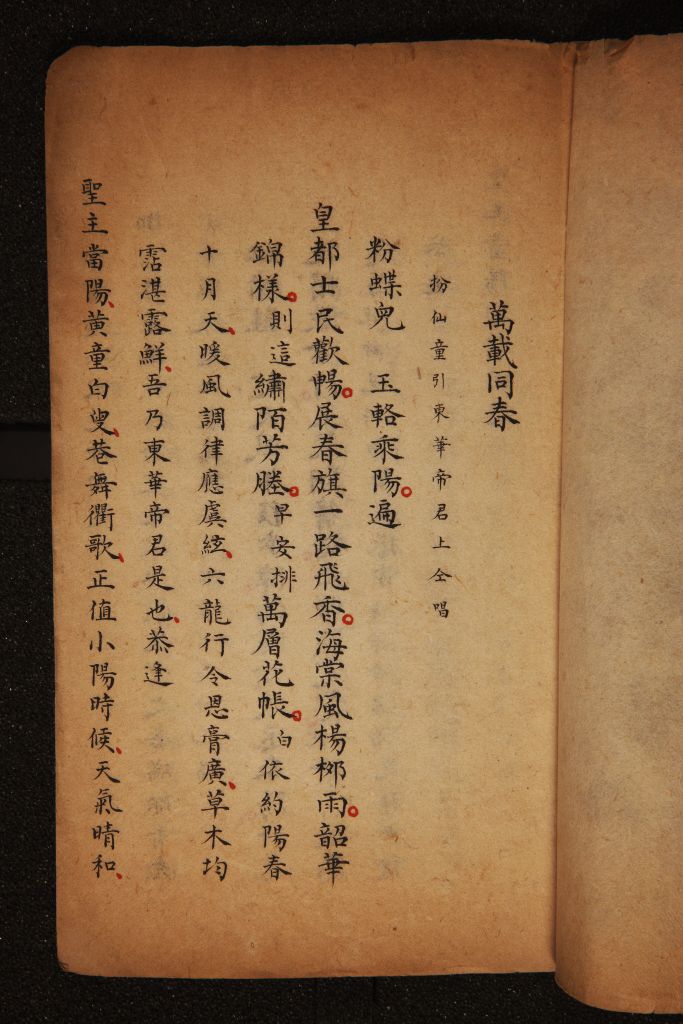 萬載同春
扮仙童引東華帝君上仝唱
粉蝶兒 玉輅乘陽。遍
皇都士民歡暢。展春旗一路飛香。海棠風楊柳雨。韶華
錦樣。則這繡陌芳塍。早安排萬層花帳。白依約陽春
十月天、暖風調律應虞絃、六龍行令恩膏廣、草木均
霑湛露鮮、吾乃東華帝君是也、恭逢
聖主當陽、黃童白叟、巷舞衢歌、正值小陽時候、天氣晴和、